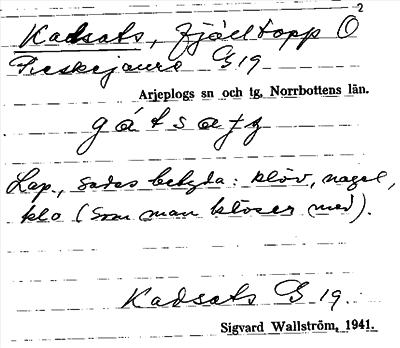 Kadsats, fjälltopp O²
Pieskejaure G 19
Arjeplogs sn och tg, Norrbottens län.
Lap., sades betyda: klöv, nagel,
klo (som man klöser med).
Kadsats G 19.
Sigvard Wallström, 1941.